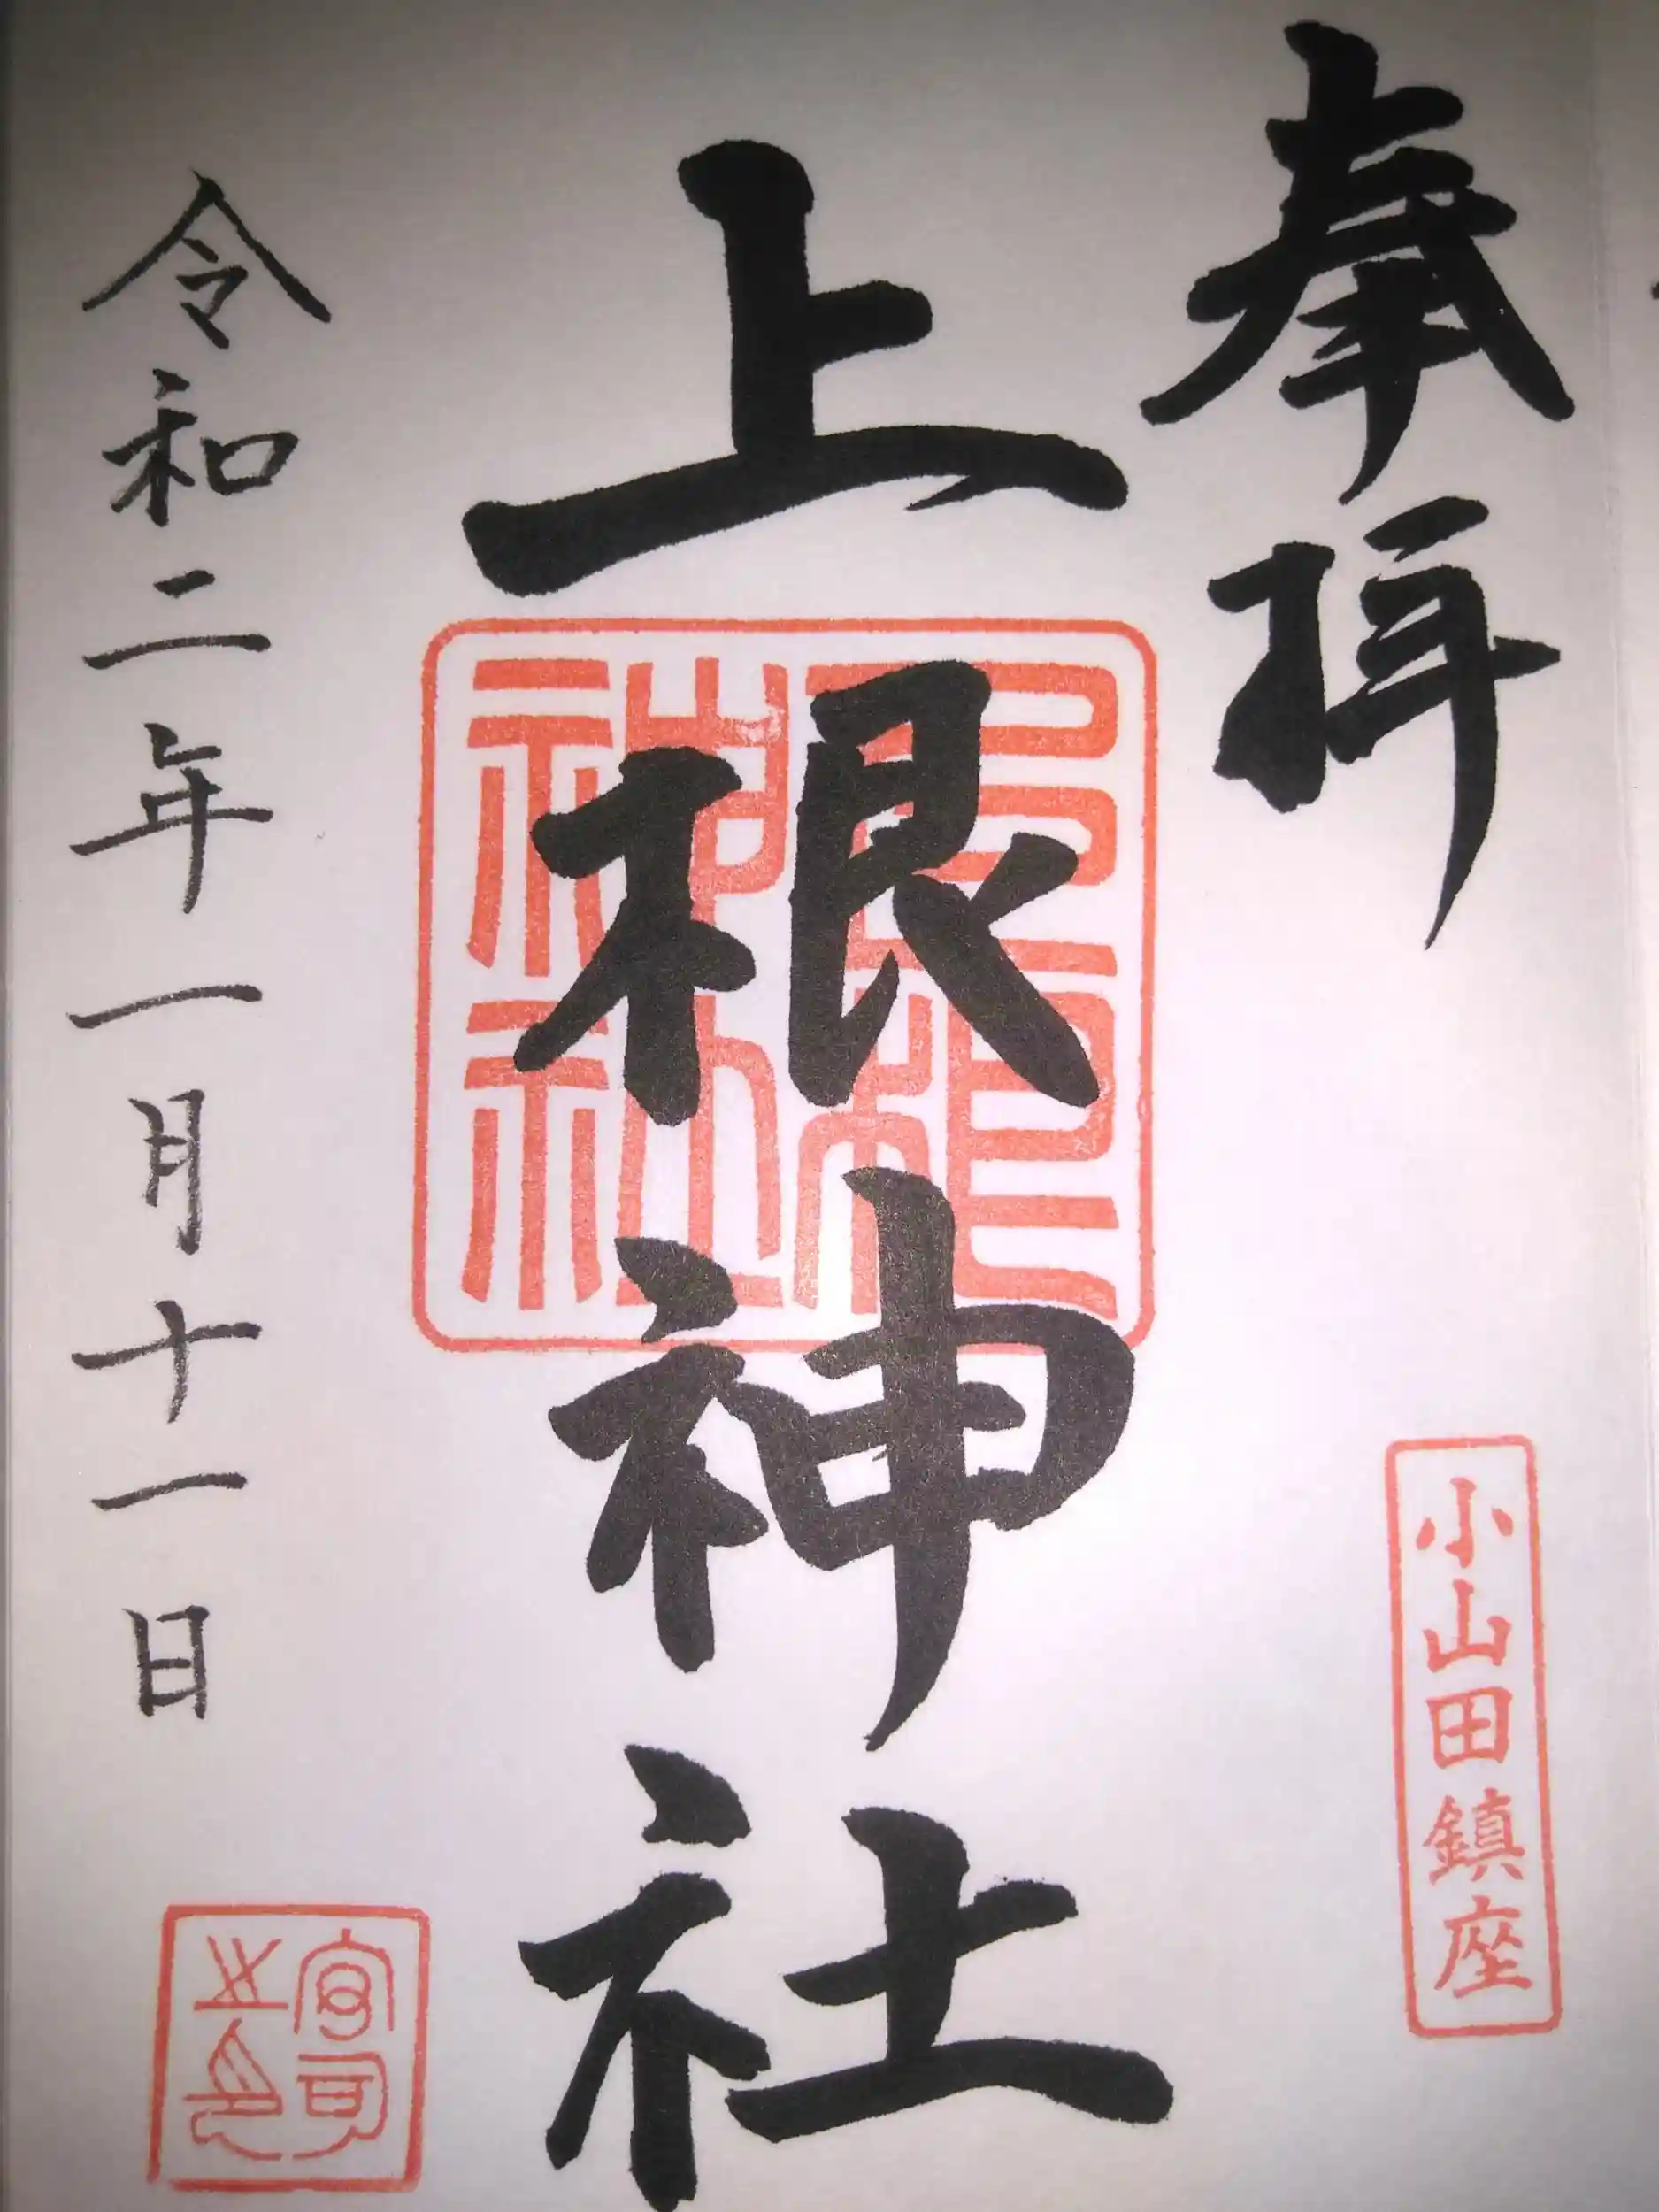 奉拝
小山田鎮座
上根神社
上根神社
令和二年一月十一日
宮司之印